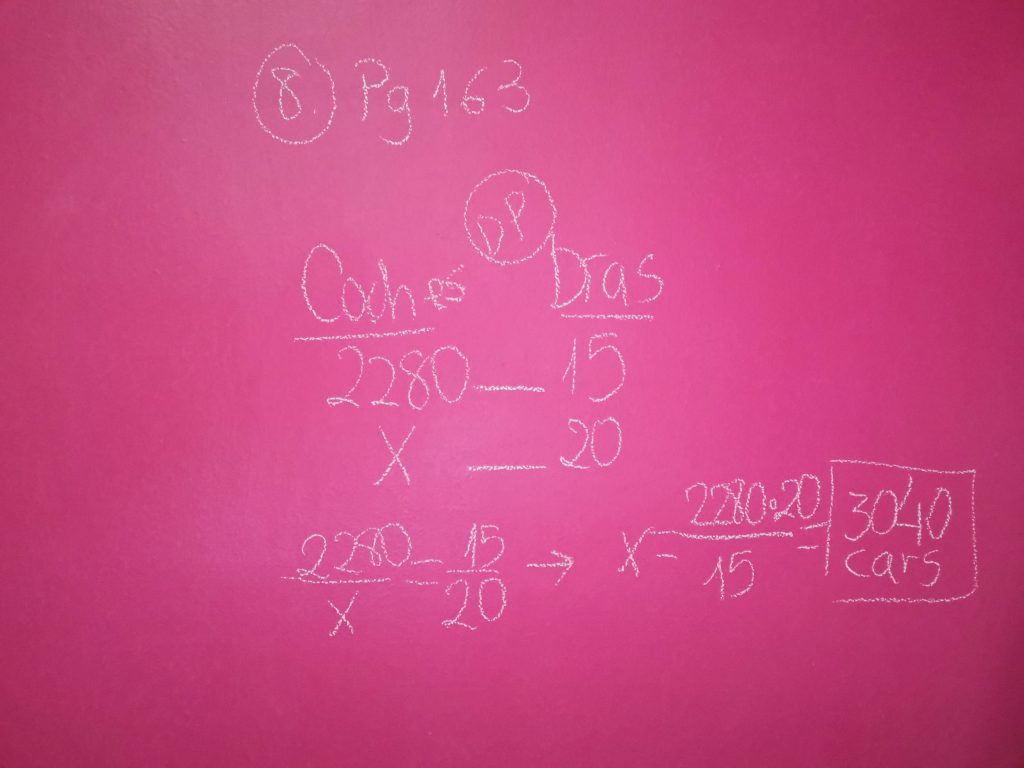 8 Pg 163
DP
Coches Dias
2280 — 15
X — 20
2280/X = 15/20 → X = 2280·20/15 = 3040 cars